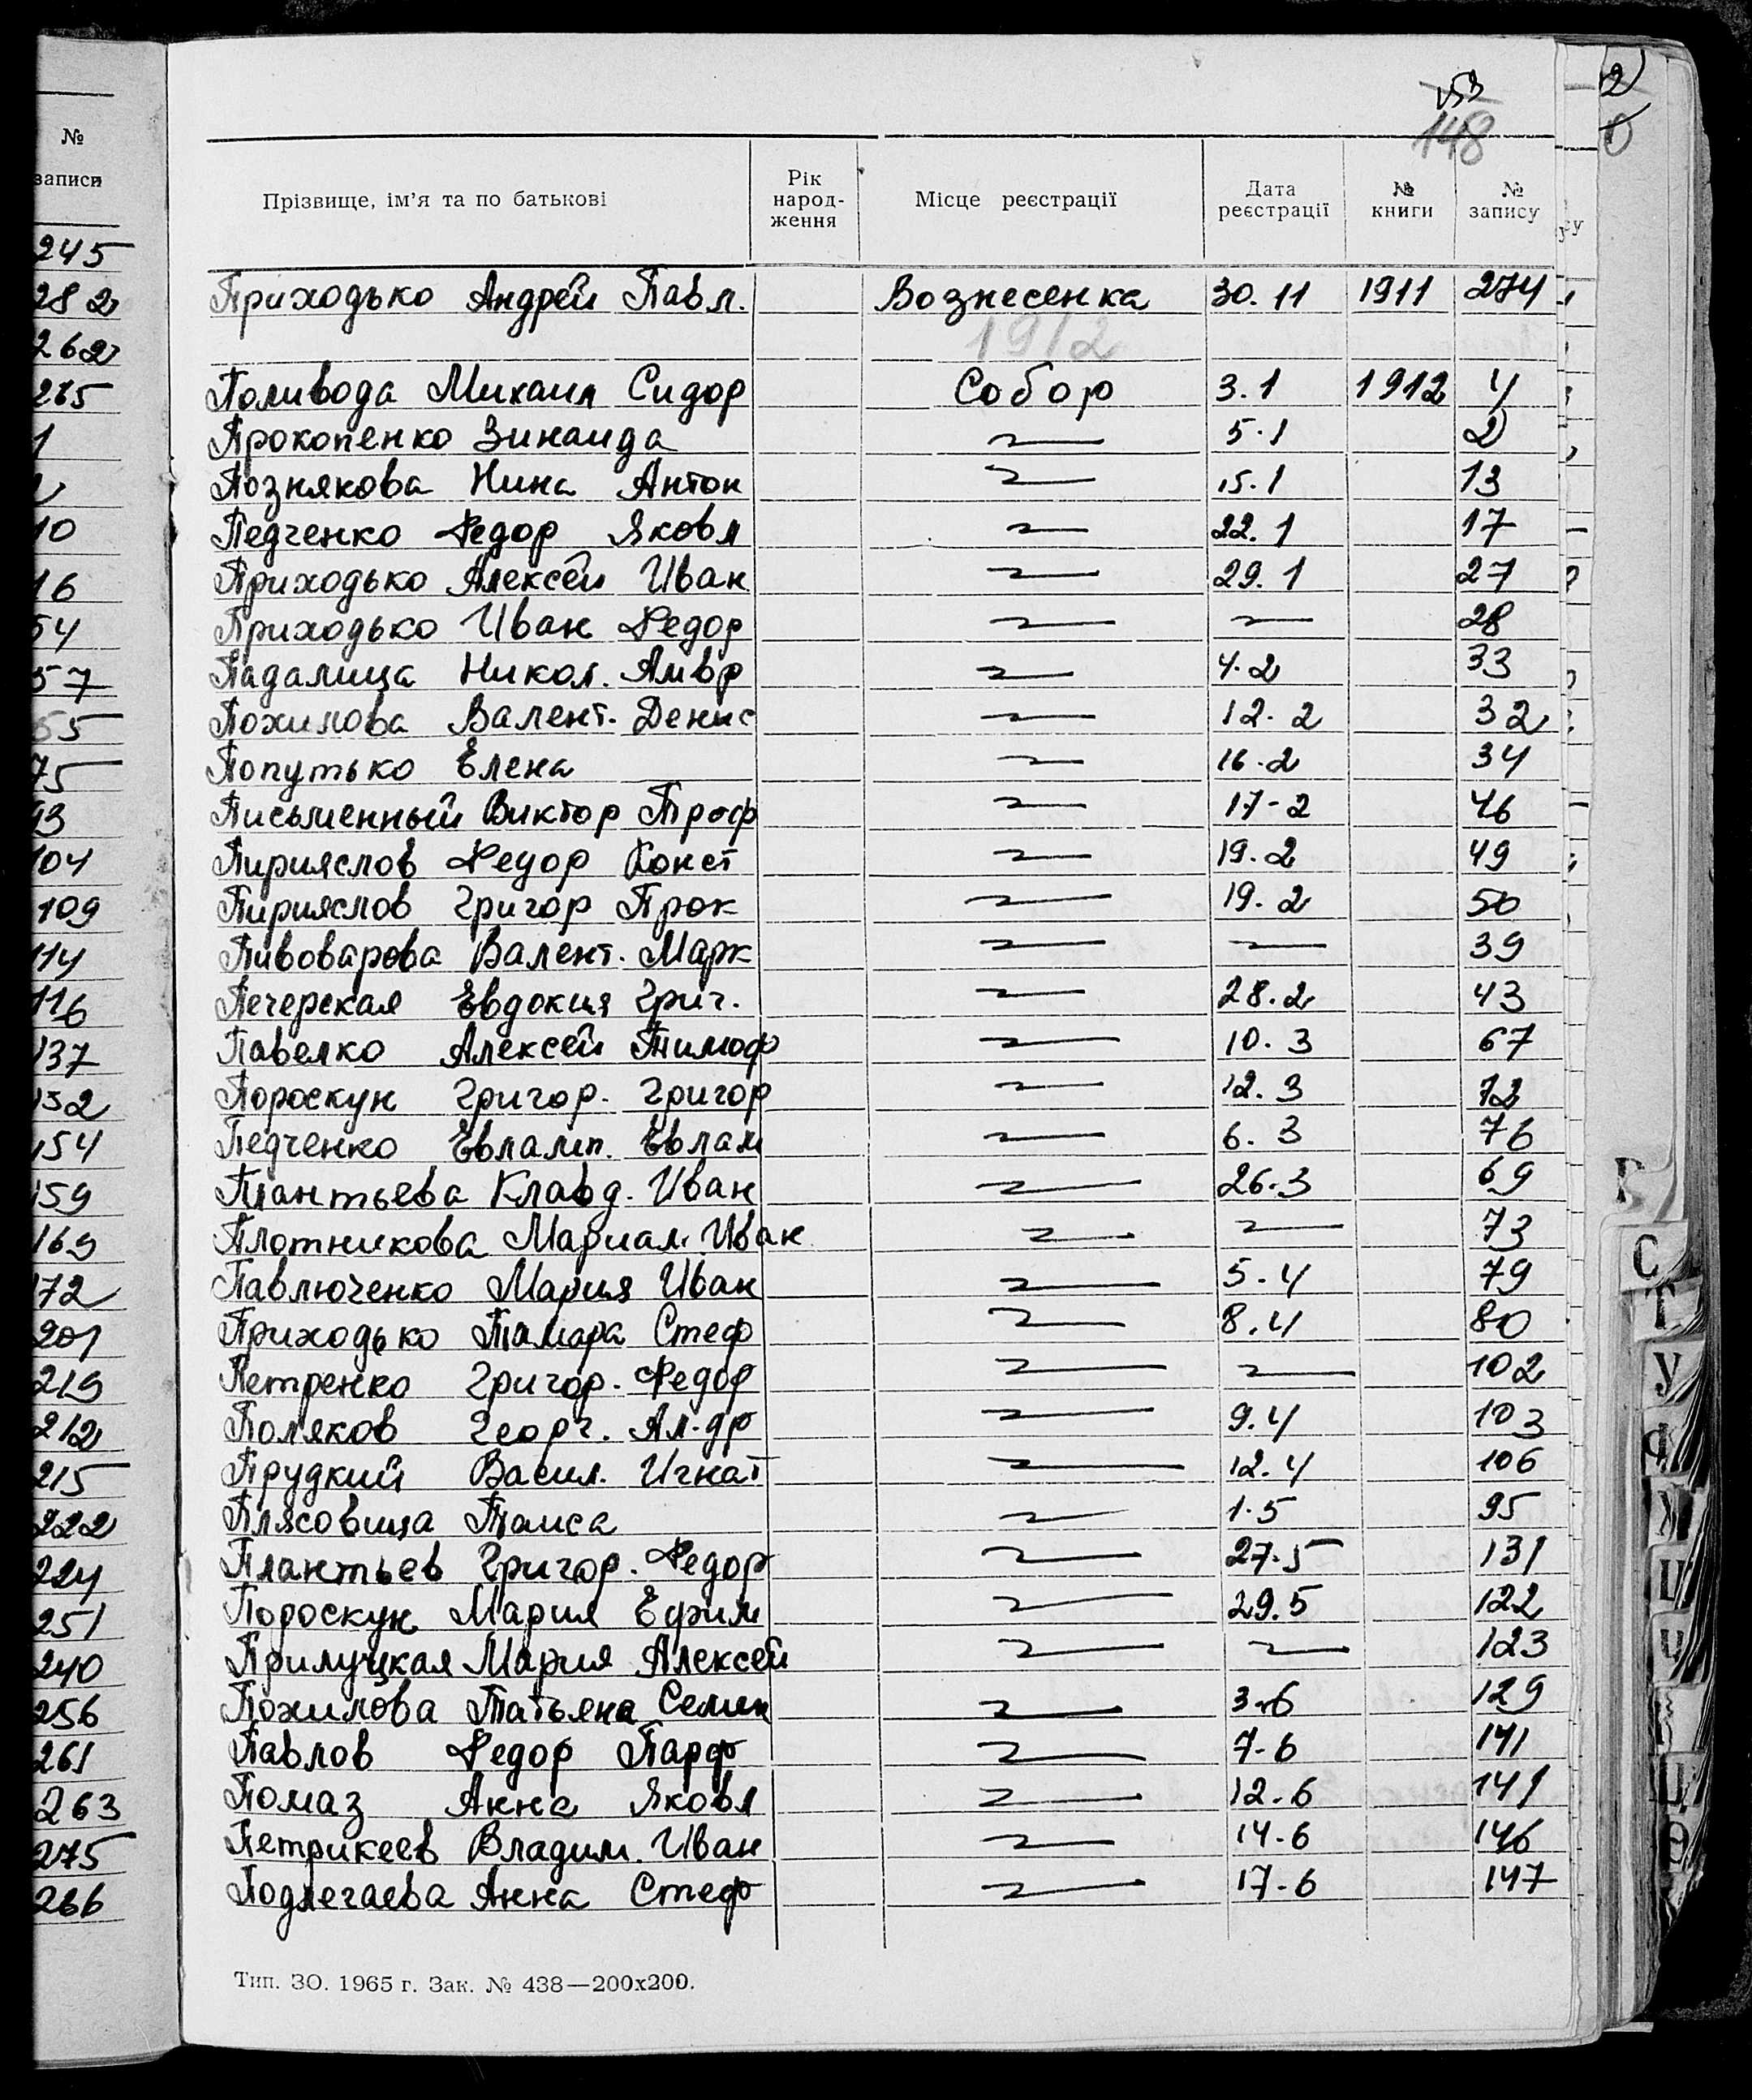 №
записи
245
282
262
265
1
10
16
54
57
55
75
93
104
109
114
116
137
132
154
159
169
172
201
219
212
215
222
224
251
240
256
261
263
275
266
153
148
Прізвище, ім'я та по батькові Рік народ- ження Місце реєстрації Дата реєстрації № книги № запису
Приходько Андрей Павл. Вознесенка 30.11 1911 274
1912
Поливода Михаил Сидор Собор 3.1 1912 4
Прокопенко Зинаида 5.1 2
Познякова Нина Антон 15.1 13
Педченко Федор Яковл 22.1 17
Приходько Алексей Иван 29.1 27
Приходько Иван Федор 28
Падалица Никол. Амвр 4.2 33
Похилова Валент. Денис 12.2 32
Попутько Елена 16.2 34
Письменный Виктор Троф 17-2 46
Пирияслов Федор Конст 19.2 49
Пирияслов Григор Прок 19.2 50
Пивоварова Валент. Марк 39
Печерская Евдокия Григ. 28.2 43
Павелко Алексей Тимоф 10.3 67
Пороскун Григор. Григор 12.3 72
Педченко Евламп. Евлам 6.3 76
Плантьева Клавд. Иван 26.3 69
Плотникова Мариам. Иван 73
Павлюченко Мария Иван 5.4 79
Приходько Тамара Стеф 8.4 80
Петренко Григор. Федор 102
Поляков Георг. Ал-др 9.4 103
Прудкий Васил. Игнат 12.4 106
Плясовица Таиса 1.5 95
Плантьев Григор. Федор 27.5 131
Пороскун Мария Ефим 29.5 122
Прилуцкая Мария Алексей 123
Похилова Татьяна Семен 3-6 129
Павлов Федор Парф 7-6 141
Помаз Анна Яковл 12.6 141
Петрикеев Владим. Иван 14-6 146
Подлегаева Анна Стеф 17-6 147
Тип. ЗО. 1965 г. Зак. № 438—200х200.
С
Т
У
Ф
Х
Ц
Ч